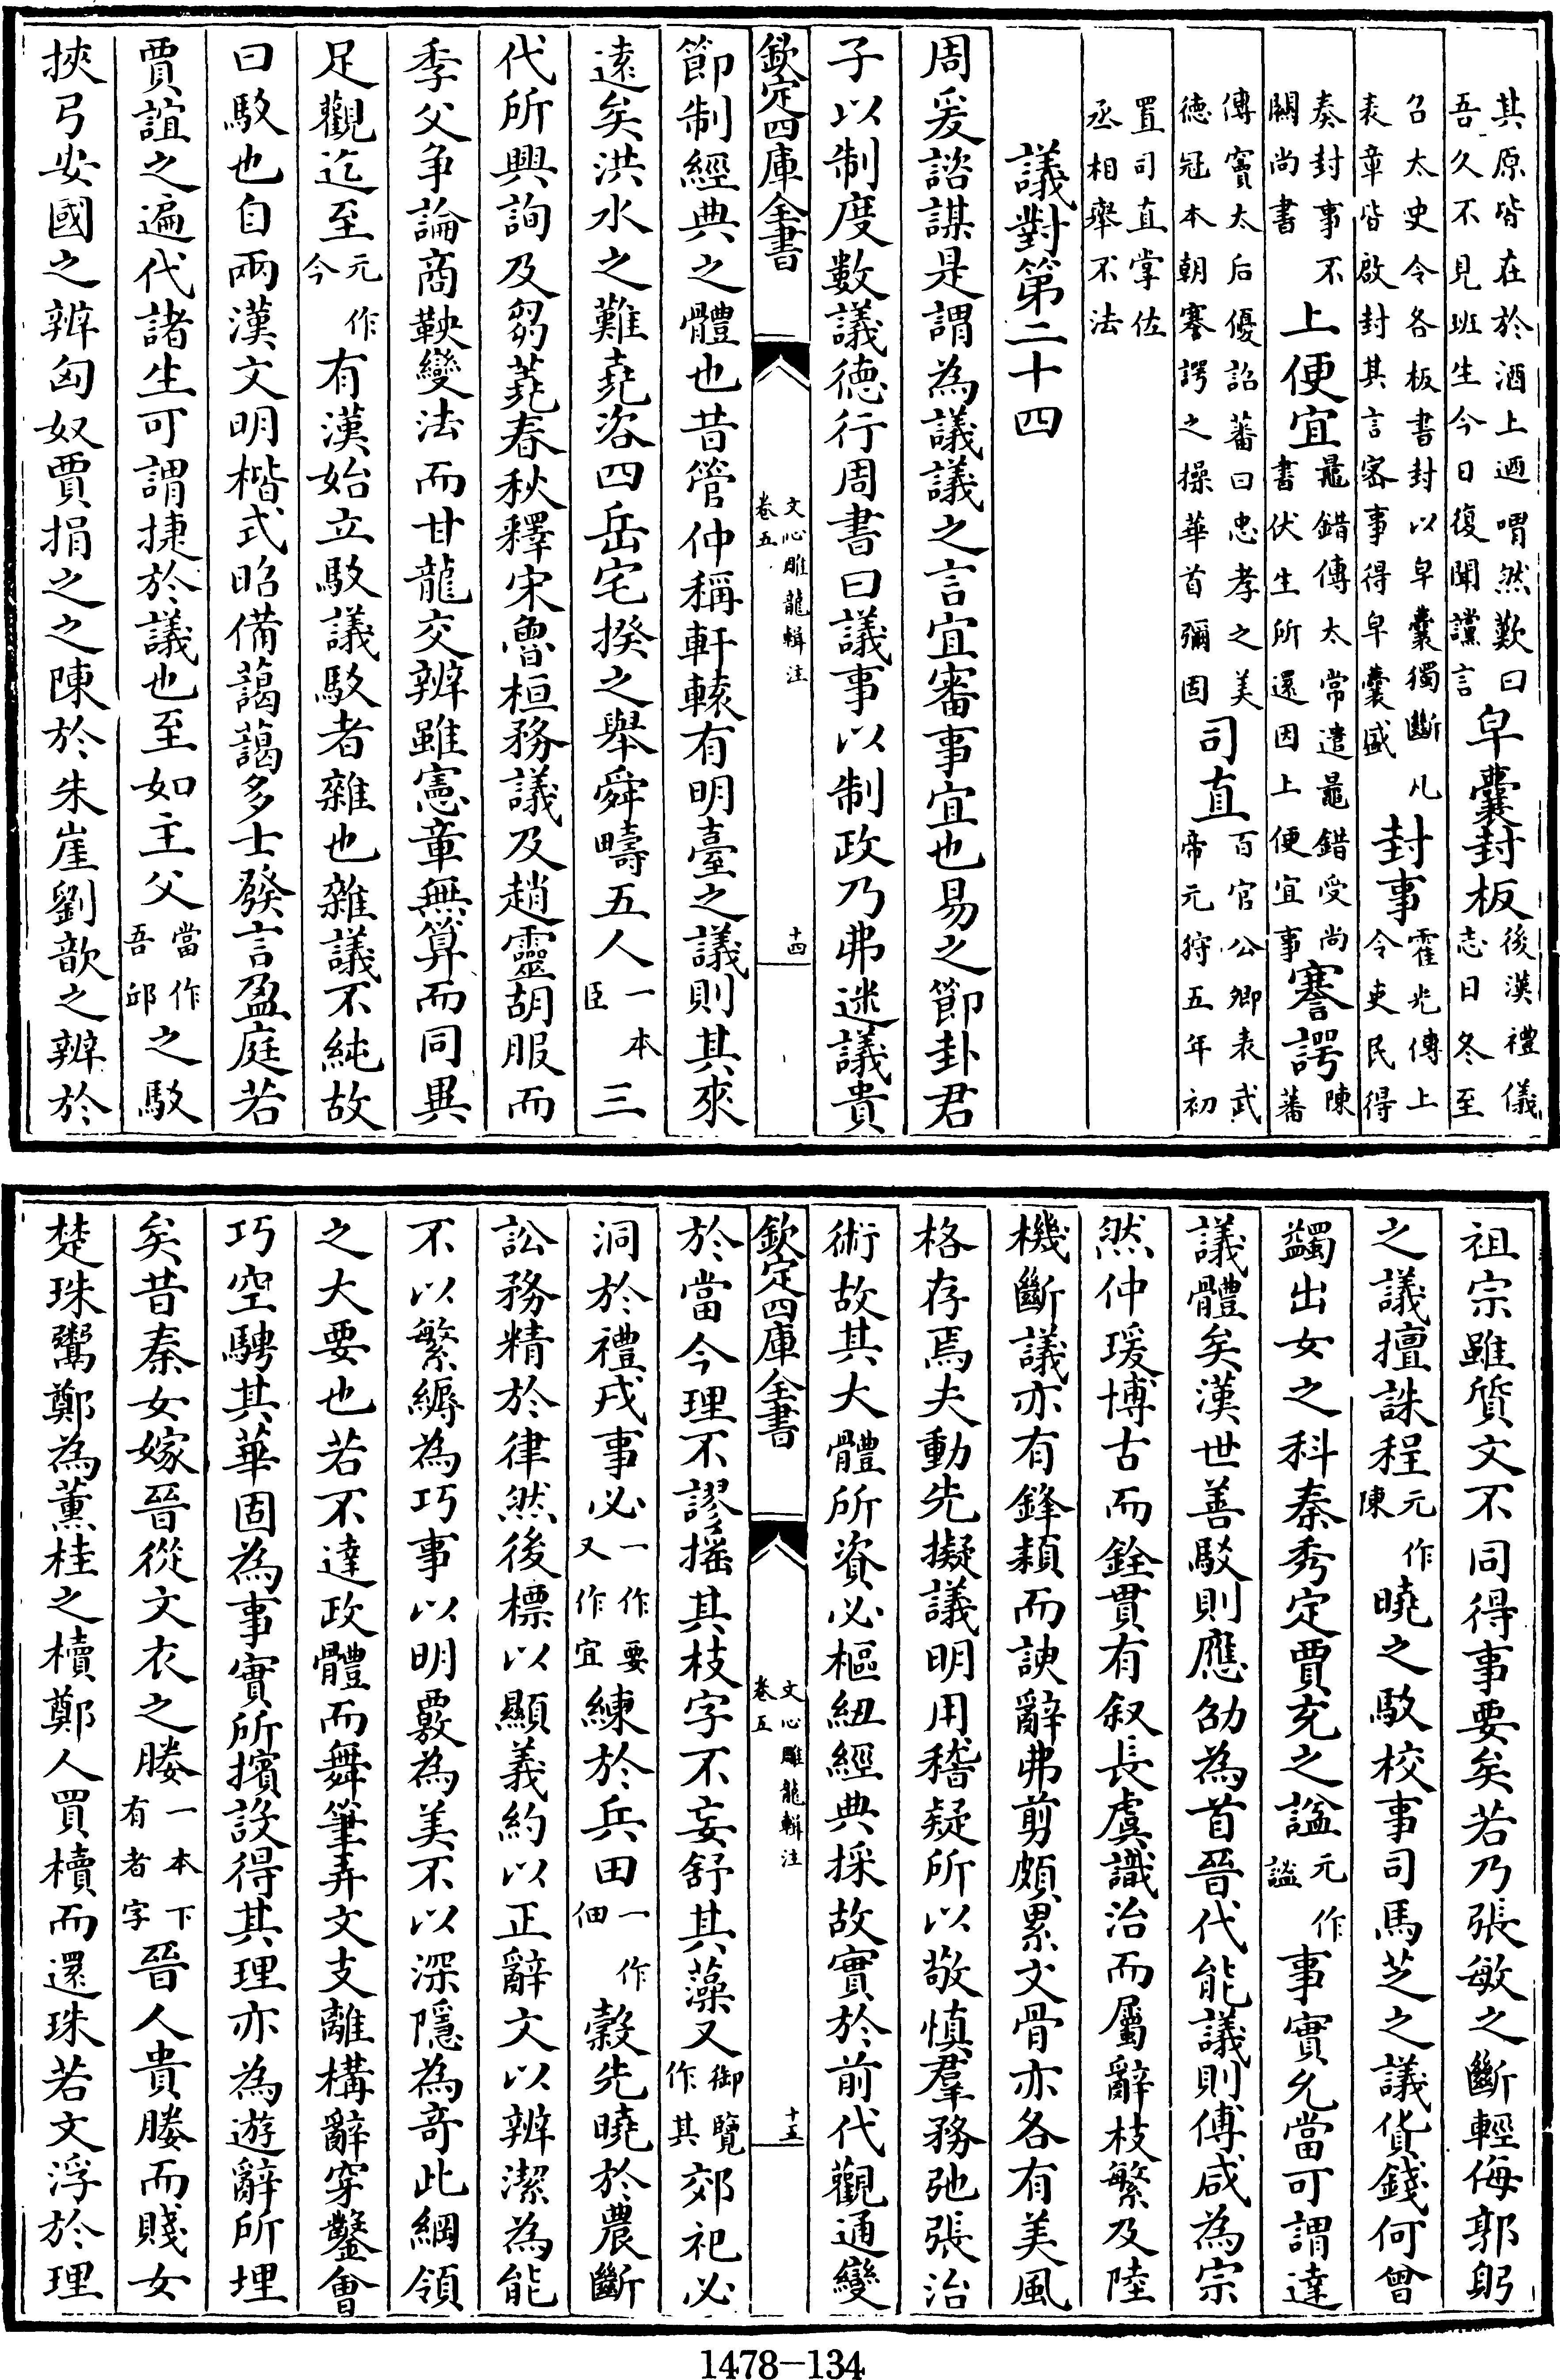 其原皆在於酒上迺喟然歎曰吾久不見班生今日復聞讜言皁囊封板後漢禮儀志日冬至
召太史令各板書封以皁囊獨斷凡表章皆啟封其言密事得皁囊盛封事霍光傳上令吏民得
奏封事不關尚書上便宜鼂錯傳太常遣鼂錯受尚書伏生所還因上便宜事謇諤陳蕃
傳竇太后優詔蕃曰忠孝之美德冠本朝謇諤之操華首彌固司直百官公卿表武帝元狩五年初
置司直掌佐丞相舉不法
議對第二十四
周爰諮謀是謂為議議之言宜審事宜也易之節卦君
子以制度數議德行周書曰議事以制政乃弗迷議貴
欽定四庫全書 文心雕龍輯注卷五 十四
節制經典之體也昔管仲稱軒轅有明臺之議則其來
遠矣洪水之難堯咨四岳宅揆之舉舜疇五人一本臣三
代所興詢及芻蕘春秋釋宋魯桓務議及趙靈胡服而
季父爭論商鞅變法而甘龍交辨雖憲章無算而同異
足觀迄至元作今有漢始立駁議駁者雜也雜議不純故
曰駁也自兩漢文明楷式昭備藹藹多士發言盈庭若
賈誼之遍代諸生可謂捷於議也至如主父當作吾邱之駁
挾弓安國之辨匈奴賈捐之之陳於朱崖劉歆之辨於
祖宗雖質文不同得事要矣若乃張敏之斷輕侮郭躬
之議擅誅程元作陳曉之駁校事司馬芝之議貨錢何曾
蠲出女之科秦秀定賈充之謚元作諡事實允當可謂達
議體矣漢世善駁則應劭為首晉代能議則傅咸為宗
然仲瑗博古而銓貫有叙長虞識治而屬辭枝繁及陸
機斷議亦有鋒穎而諛辭弗剪頗累文骨亦各有美風
格存焉夫動先擬議明用稽疑所以敬慎羣務弛張治
術故其大體所資必樞紐經典採故實於前代觀通變
欽定四庫全書 文心雕龍輯注卷五 十五
於當今理不謬搖其枝字不妄舒其藻又御覽作其郊祀必
洞於禮戎事必一作要又作宜練於兵田一作佃穀先曉於農斷
訟務精於律然後標以顯義約以正辭文以辨潔為能
不以繁縟為巧事以明覈為美不以深隱為奇此綱領
之大要也若不達政體而舞筆弄文支離構辭穿鑿會
巧空騁其華固為事實所擯設得其理亦為遊辭所埋
矣昔秦女嫁晉從文衣之媵一本下有者字晉人貴媵而賤女
楚珠鬻鄭為薰桂之櫝鄭人買櫝而還珠若文浮於理
1478-134